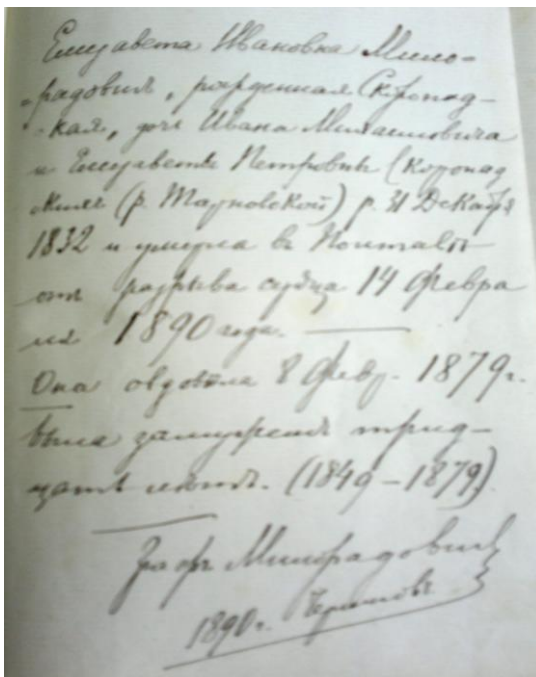 Елисавета Ивановна Мило-
-радовичъ, рожденная Скоропад-
-ская, дочь Ивана Михаиловича
и Елисаветы Петровны Скоропад
скихъ (р. Тарновской) р. 31 Декабря
1832 и умерла въ Полтавѣ
отъ разрыва сердца 14 Февра
ля 1890 года.
Она овдовѣла 8 Февр. 1879 г.
была замужемъ трид-
цать лѣтъ. (1849 – 1879)
Графъ Милорадовичъ
1890 г. Черниговъ